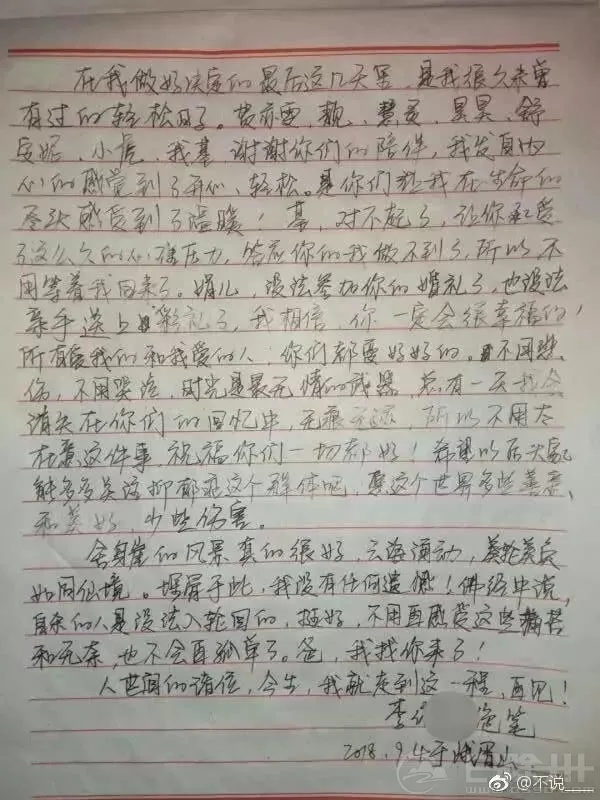 在我做好决定的最后这几天里,是我很久未曾
有过的轻松日子。黄亦雯,靓,慧灵,昊昊,舒
安妮,小虎,我基,谢谢你们的陪伴,我发自内
心的感觉到了开心、轻松。是你们让我在生命的
尽头感受到了温暖!基,对不起了,让你承受
了这么久的心理压力,答应你的我做不到了,所以,不
用等着我回来了。娟儿,没法参加你的婚礼了,也没法
亲手送上彩礼了,我相信,你一定会很幸福的!
所有爱我的和我爱的人,你们都要好好的。不用悲
伤,不用哭泣,时光是最无情的武器,总有一天我会
消失在你们的回忆中,无痕无迹,所以不用太
在意这件事,祝福你们一切都好!希望以后大家
能多多关注抑郁症这个群体吧,愿这个世界多些善意、
和美好,少些伤害。
舍身崖的风景真的很好,云海涌动,美轮美奂
如同仙境。埋屌于此,我没有任何遗憾!佛经中说,
自杀的人是没法入轮回的,挺好,不用再感受这些痛苦
和无奈,也不会再孤单了。爸,我找你来了!
人世间的诸位,今生,我就走到这一程,再见!
李 绝笔
2018.9.4于峨眉山
@不说